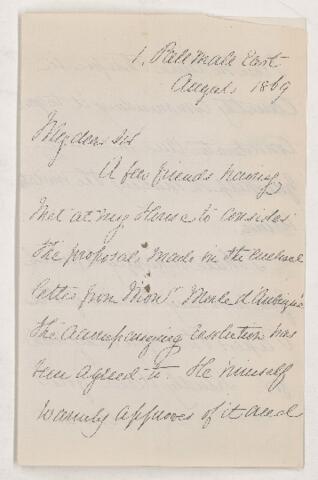 1, Pall Mall East
August 1869
My dear Sir
A few friends having
met at my House to consider
the proposals made in the enclosed
letter from Monsr. Merle d'Aubigné
the accompanying resolution was
been agreed to. He himself
warmly approves of it and